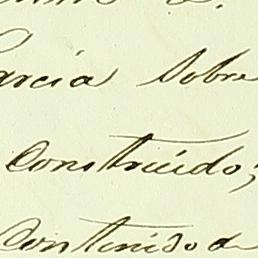 Garcia sobre
Construido;
Contenido de